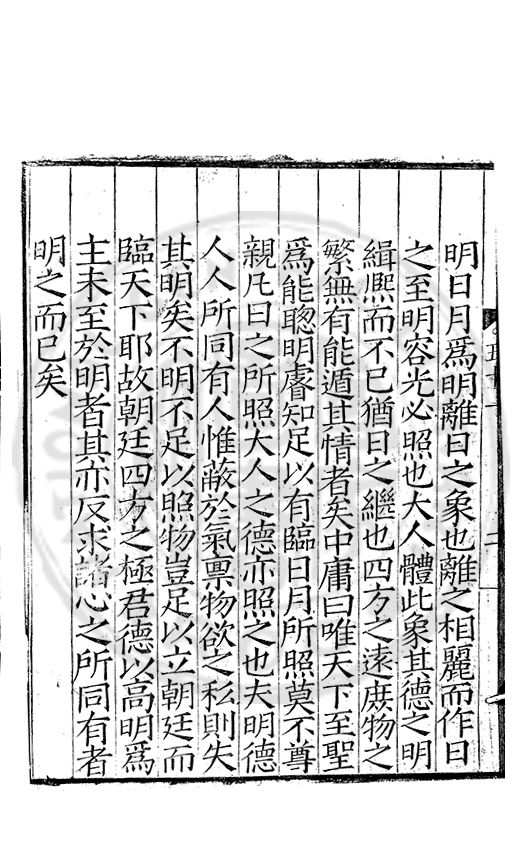 明日月爲明離日之象也離之相麗而作日
之至明容光必照也大人體此象其德之明
緝熈而不已猶日之繼也四方之遠庶物之
繁無有能遁其情者矣中庸曰唯天下至聖
爲能聦明睿知足以有臨日月所照莫不尊
親凡日之所照大人之德亦照之也夫明德
人人所同有人惟蔽於氣禀物欲之私則失
其明矣不明不足以照物豈足以立朝廷而
臨天下耶故朝廷四方之極君德以高明爲
主未至於明者其亦反求諸心之所同有者
明之而已矣